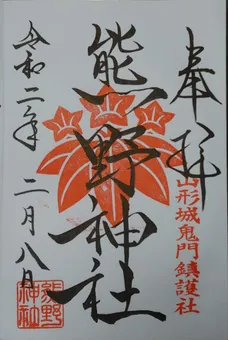 奉拝
山形城鬼門鎮護社
熊野神社
令和二年二月八日
熊野
神社